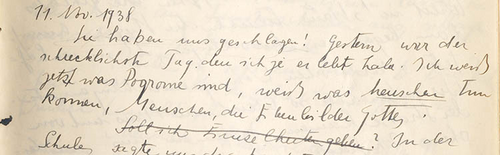 11. Nov. 1938
Sie haben uns geschlagen! Gestern war der
schrecklichste Tag, den ich je erlebt habe. Ich weiß
jetzt was Pogrome sind, weiß was Menschen tun
können, Menschen, die Ebenbilder Gottes!
Soll ich gehen? In der
Schule sagte